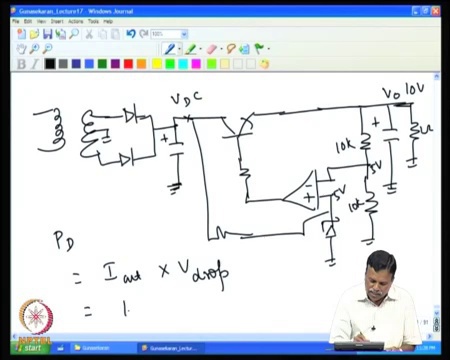 Gunasekaran_Lecture17 - Windows Journal
File Edit View Insert Actions Tools Help
100%
B I
V DC
Vo 10V
10k
5V
5V
10k
PD
= Iout x Vdrop
= 1
NPTEL
start
Gunasekaran
Gunasekaran_Lectur...